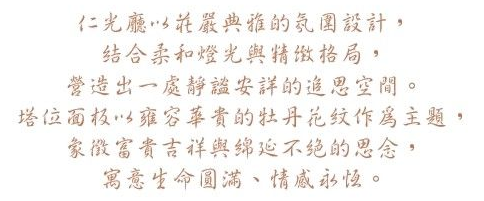 仁光廳以莊嚴典雅的氛圍設計，
結合柔和燈光與精緻格局，
營造出一處靜謐安詳的追思空間。
塔位面板以雍容華貴的牡丹花紋作為主題，
象徵富貴吉祥與綿延不絕的思念，
寓意生命圓滿、情感永恆。